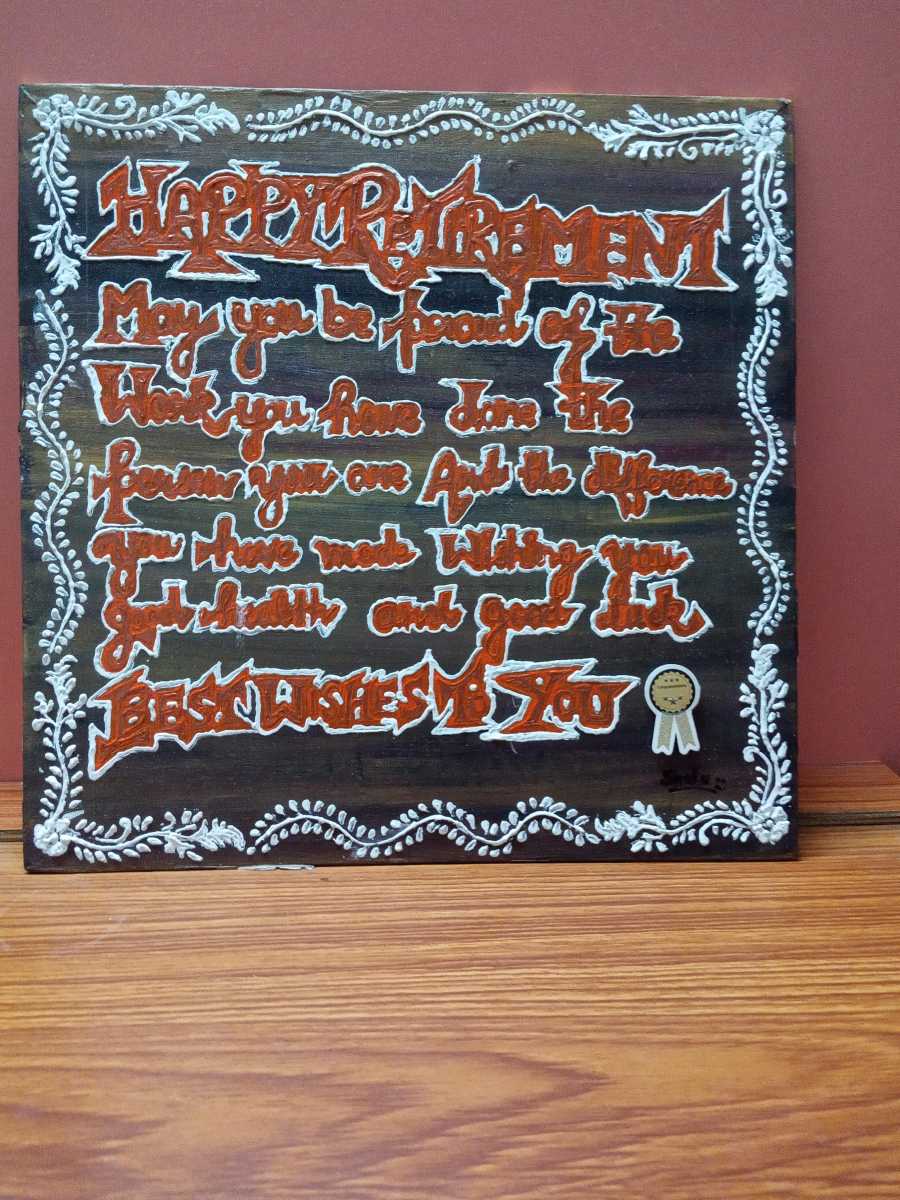 HAPPY RETIREMENT
May you be proud of the
Work you have done the
person you are And the difference
you have made Wishing you
good health and good luck
BEST WISHES TO YOU